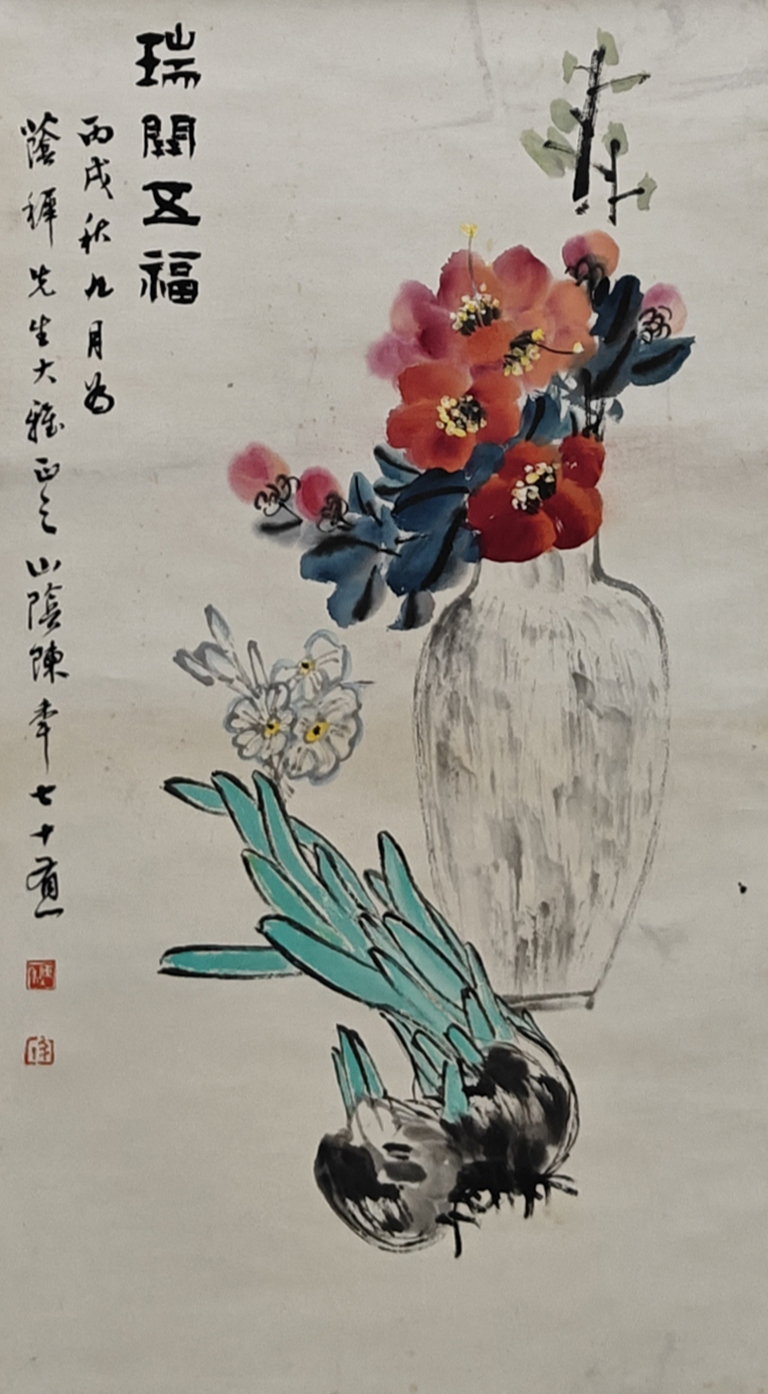 瑞開五福
丙戌秋九月為
蔭先生大雅正之山陰陳年七十有一